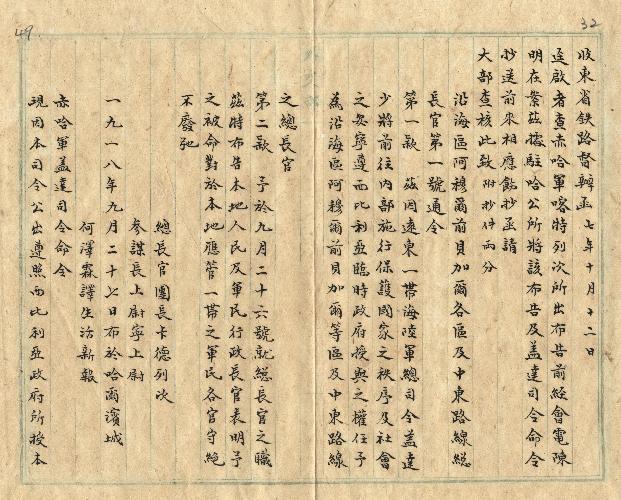 32
收東省鉄路督辦函 七年十月十二日
逕啟者查赤哈軍喀特列次所出布告前經會電陳
明在案茲據駐哈公所將該布告及盖達司令命令
抄送前來相應飭抄函請
大部查核此致 附抄件兩分
沿海區阿穆爾前貝加爾各區及中東路線総
長官第一號通令
第一款 茲因遠東一帶海陸軍總司令盖達
少將前往内部施行保護國家之秩序及社會
之安寧遵西比利亞臨時政府授與之權任予
為沿海區阿穆爾前貝加爾等區及中東路線
之總長官
第二款 予於九月二十六號就総長官之職
茲特布告本地人民及軍民行政長官表明予
之被命對於本地應管一帶之軍民各官守絶
不廢弛
總長官團長卡德列次
參謀長上尉寧上尉
一九一八年九月二十七日布於哈爾濱城
何澤霖譯生活新報
赤哈軍盖達司令命令
現因本司令公出遵照西比利亞政府所授本
49